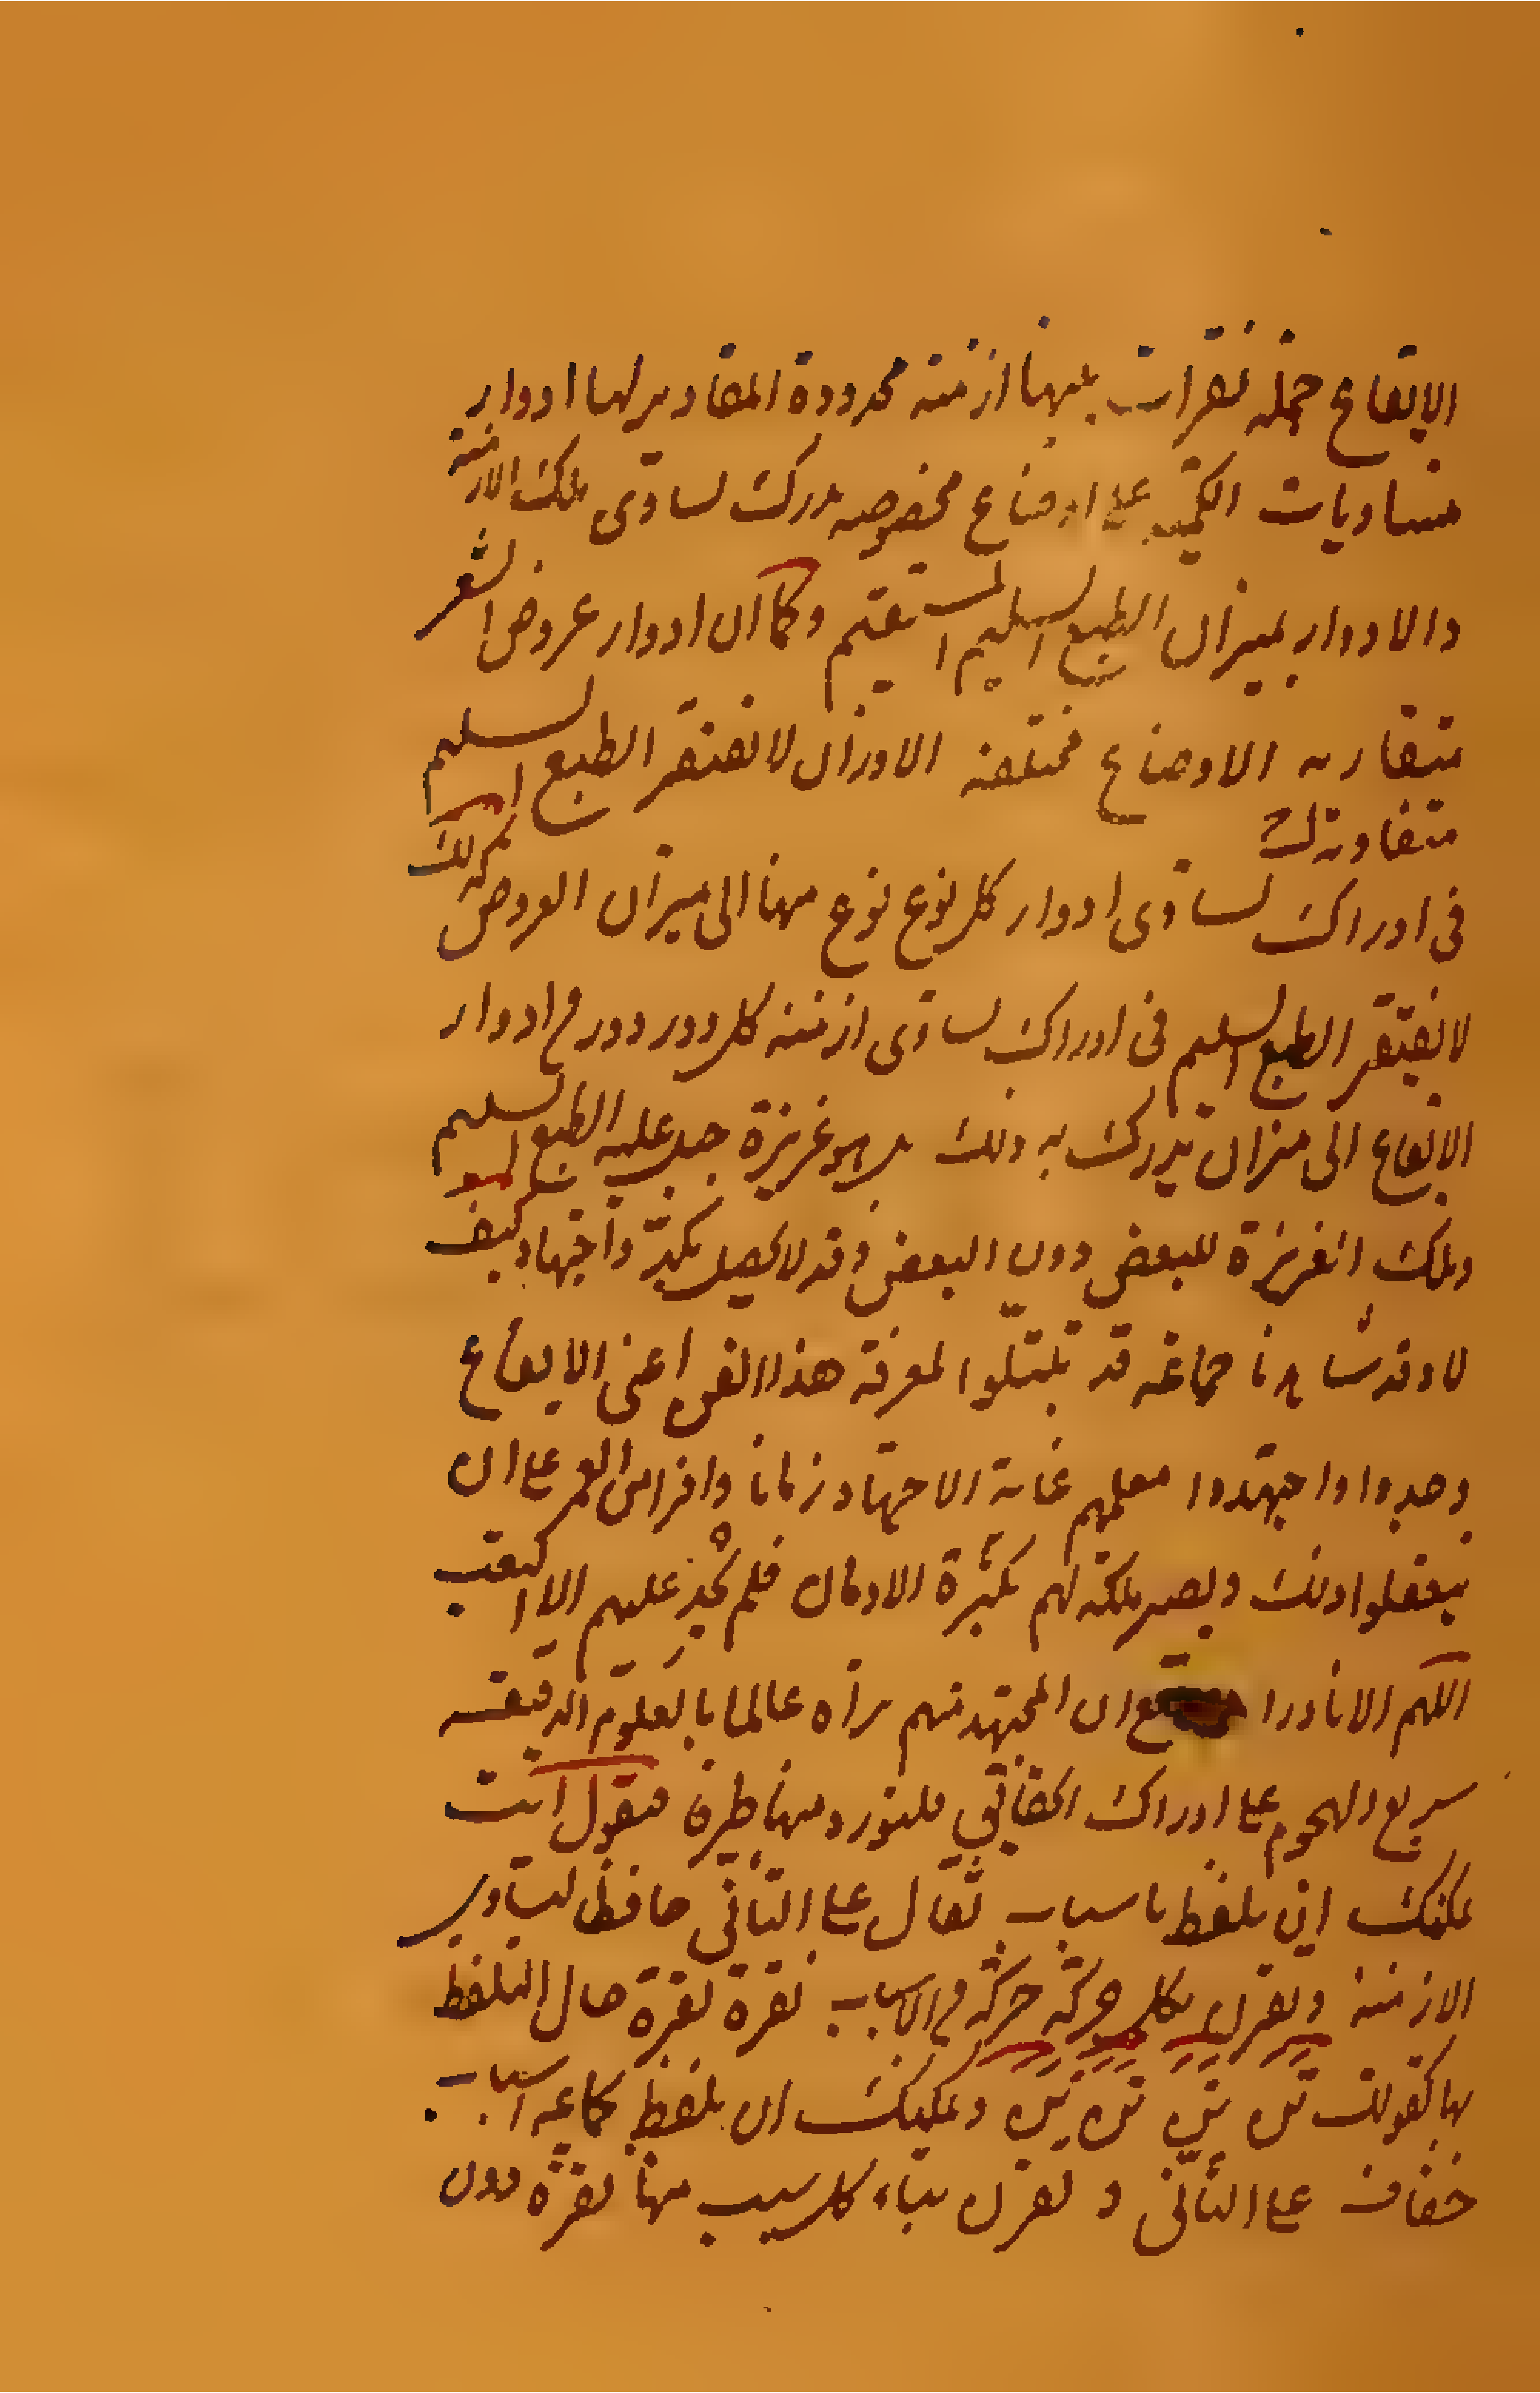 الايقاع جملة نقرات بينها ازمنة محدودة المقادير لها ادوار
متساويات الكمية على اوضاع مخصوصه يدرك تساوى تلك الازمنة
والادوار بميزان الطبع السليم المستقيم وكما ان ادوار عروض الشعر
متقاربه الاوضاع مختلفة الاوزان لا يفتقر الطبع السليم
متفاوتة
فى ادراك تساوى ادوار كل نوع نوع منها الى ميزان العروض كذلك
لا يفتقر الطبع السليم فى ادراك تساوى ازمنة كل دور دور من ادوار
الايقاع الى ميزان يدرك به ذلك بل هو غريزة جبل عليه الطبع السليم
وتلك الغريزة للبعض دون البعض وقد لا يحصل بكدّ واجتهاد وكيف
لا وقد شاهدنا جماعة قد تبتلوا لمعرفة هذا الفن اعنى الايقاع
وجدوا واجتهدوا معلمهم غاية الاجتهاد زمانا وافرا من العمر على ان
يتعقلوا ذلك ويصير ملكة لهم بكثرة الادمان فلم يُجْدِ عليهم الا التعب
اللهم الا نادرا مع ان المجتهد منهم يراه عالما بالعلوم الدقيقه
سريع الهجوم على ادراك الحقائق فلنورد منها طرفا فنقول انت
يمكنك ان تلفظ باسباب ثقال على التأنّى حافظا لتساوى
الازمنة وتقرن بكل حركة حركة من الاسباب نقرة نقرة حال التلفظ
بها كقولك تَنَ تَنَ تَنَ تَنَ ويمكنك ان تلفظ بجماعة اسباب
خفاف على التأنّى و تقرن بتاء كل سبب منها نقرة دون